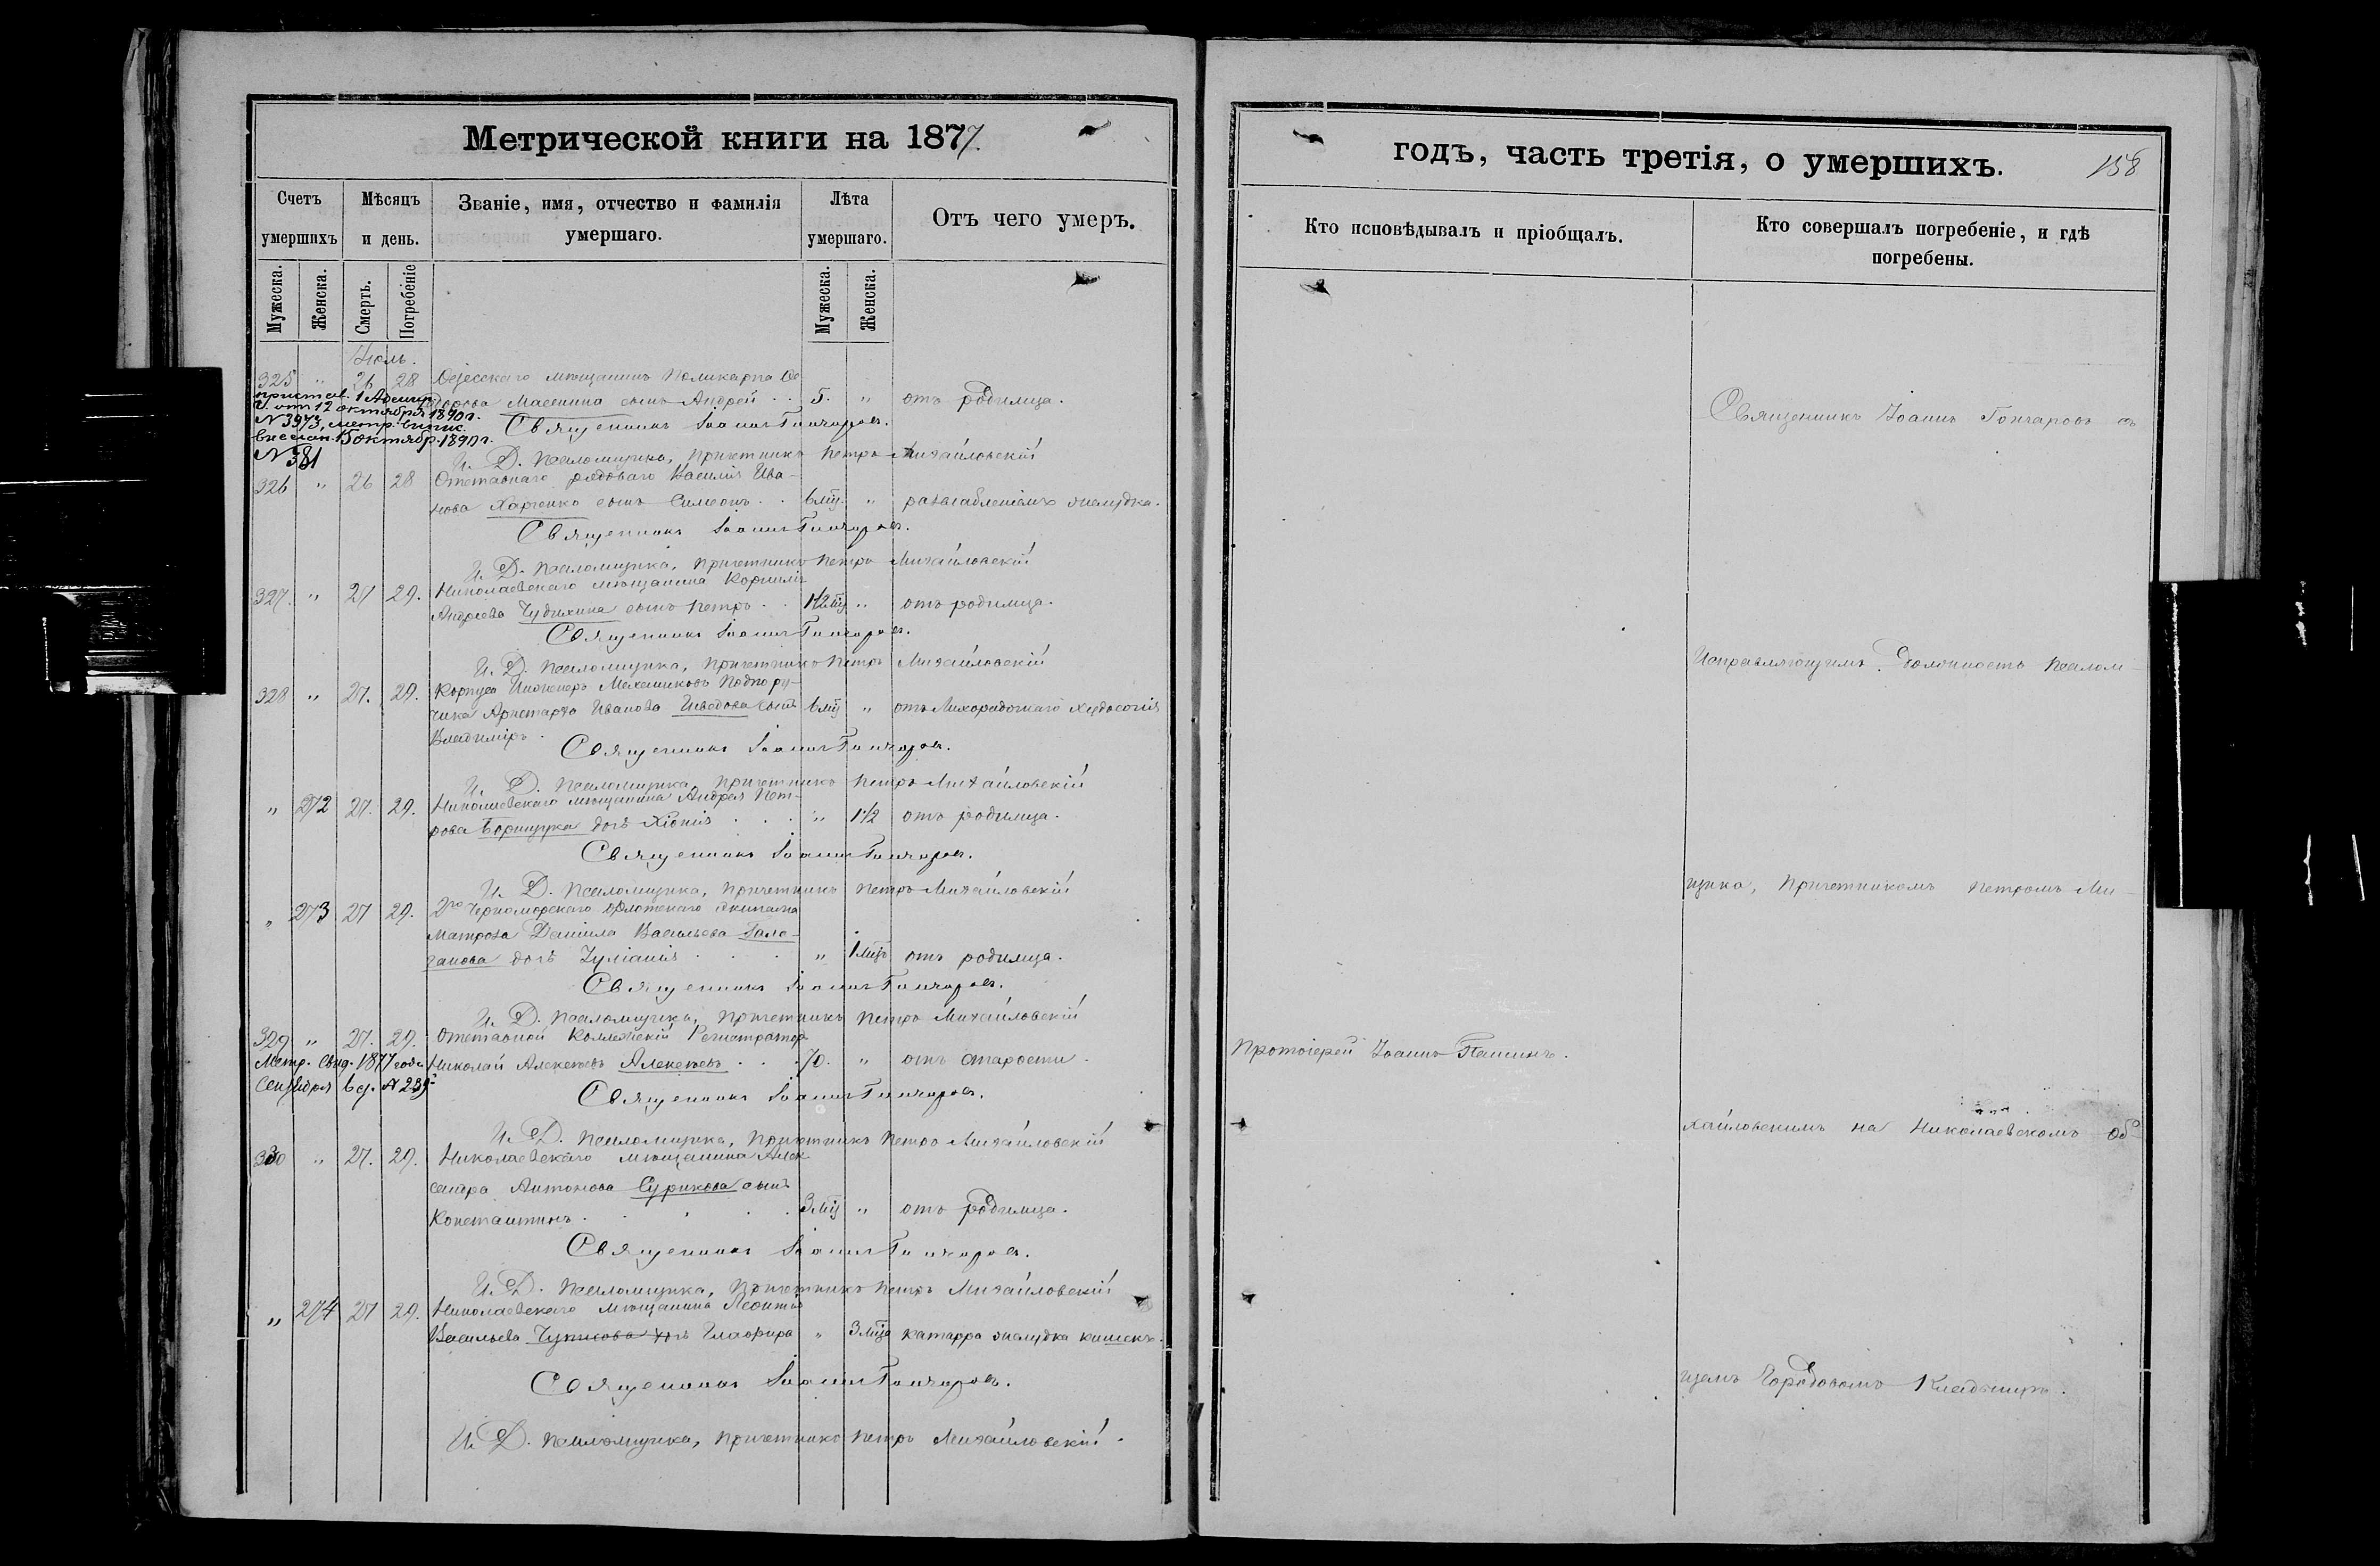 Метрической книги на 1877
Счетъ умершихъ
Мѣсяцъ и день.
Званіе, имя, отчество и фамилія умершаго.
Лѣта умершаго.
Отъ чего умеръ.
Мужеска. Женска. Смерть. Погребеніе Мужеска. Женска.
Іюль.
325 " 26 28 Одесскаго мѣщанина Поликарпа Ѳе-
дорова Масенина сынъ Андрей . . 5. " отъ родимца.
12 октября 1890 г.
N 3973, метр. выпис.
15 октябр. 1890 г.
N 381
Священникъ Іоаннъ Гончаровъ.
И. Д. Псаломщика, Причетникъ Петръ Михайловскій
326 " 26 28 Отставнаго рядоваго Василія Ива-
нова Харченко сынъ Симеонъ . . 6 мц. " разслабленіемъ желудка.
Священникъ Іоаннъ Гончаровъ.
И. Д. Псаломщика, Причетникъ Петръ Михайловскій
327. " 27 29. Николаевскаго мѣщанина Корнилія
Андреева Чудихина сынъ Петръ . . 1½ мц " отъ родимца.
Священникъ Іоаннъ Гончаровъ.
И. Д. Псаломщика, Причетникъ Петръ Михайловскій
328 " 27. 29. Корпуса Инженеръ Механиковъ Подпору-
чика Аристарха Иванова Шведова сынъ 6 мц " отъ Лихорадочнаго худосочія
Владиміръ.
Священникъ Іоаннъ Гончаровъ.
И. Д. Псаломщика, Причетникъ Петръ Михайловскій
" 272 27. 29. Николаевскаго мѣщанина Андрея Пет-
рова Борищука дочь Хіонія . . . " 1½ отъ родимца.
Священникъ Іоаннъ Гончаровъ.
И. Д. Псаломщика, Причетникъ Петръ Михайловскій
" 273 27 29. 2го Черноморскаго Флотскаго экипажа
матроса Даніила Васильева Гала-
ганова дочь Іуліанія . . . " 1 мцъ отъ родимца.
Священникъ Іоаннъ Гончаровъ.
И. Д. Псаломщика, Причетникъ Петръ Михайловскій
329 " 27. 29. Отставной Коллежскій Регистраторъ
Николай Алексѣевъ Алексѣевъ . . 70. " отъ старости.
Метр. свид. 1877 года
Сентября 6 д. N 239
Священникъ Іоаннъ Гончаровъ.
И. Д. Псаломщика, Причетникъ Петръ Михайловскій
330 " 27. 29. Николаевскаго мѣщанина Алек-
сандра Антонова Сурикова сынъ
Константинъ . . . . 3 мц " отъ родимца.
Священникъ Іоаннъ Гончаровъ.
И. Д. Псаломщика, Причетникъ Петръ Михайловскій
" 274 27 29. Николаевскаго мѣщанина Леонтія
Васильева дочь Глафира " 3 мца катарра желудка кишекъ.
Священникъ Іоаннъ Гончаровъ.
И. Д. Псаломщика, Причетникъ Петръ Михайловскій.
годъ, часть третія, о умершихъ.
158
Кто исповѣдывалъ и пріобщалъ.
Кто совершалъ погребеніе, и гдѣ погребены.
Священникъ Іоаннъ Гончаровъ съ
Исправляющимъ Должность Псалом-
щика, Причетникомъ Петромъ Ми-
Протоіерей Іоаннъ
хайловскимъ на Николаевскомъ Об-
щемъ Городовомъ Кладбищѣ.